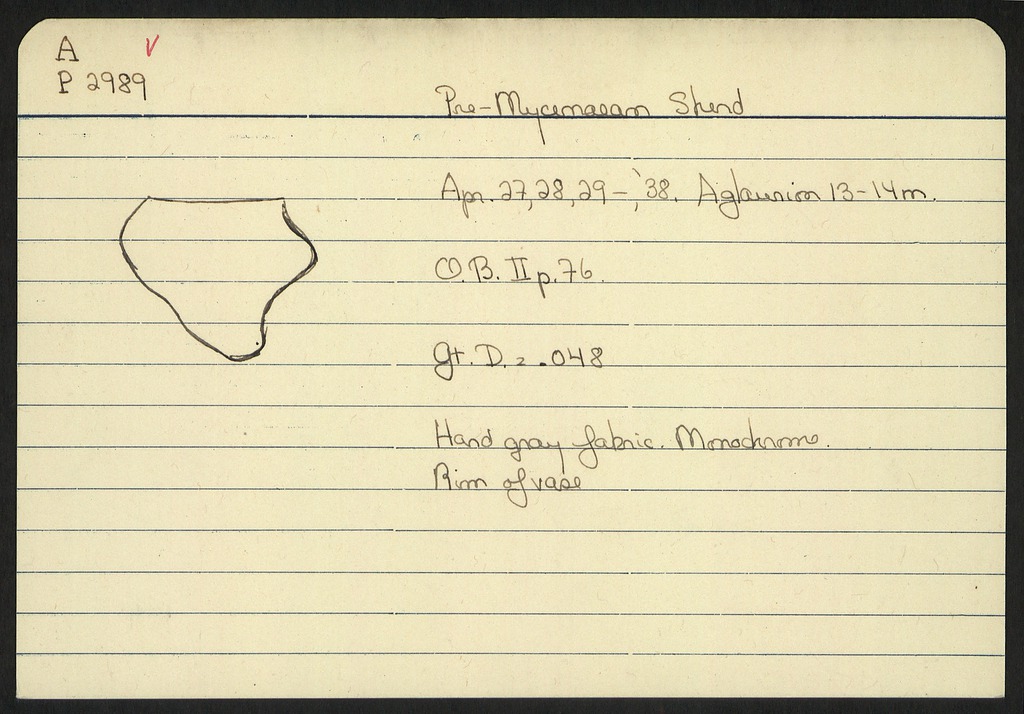 A
P 2989
Pre-Mycenaean Sherd
Apr. 27, 28, 29 -, '38. Aglaurion 13-14m.
O.B. II p. 76.
Gt. D. = .048
Hard gray fabric. Monochrome.
Rim of vase